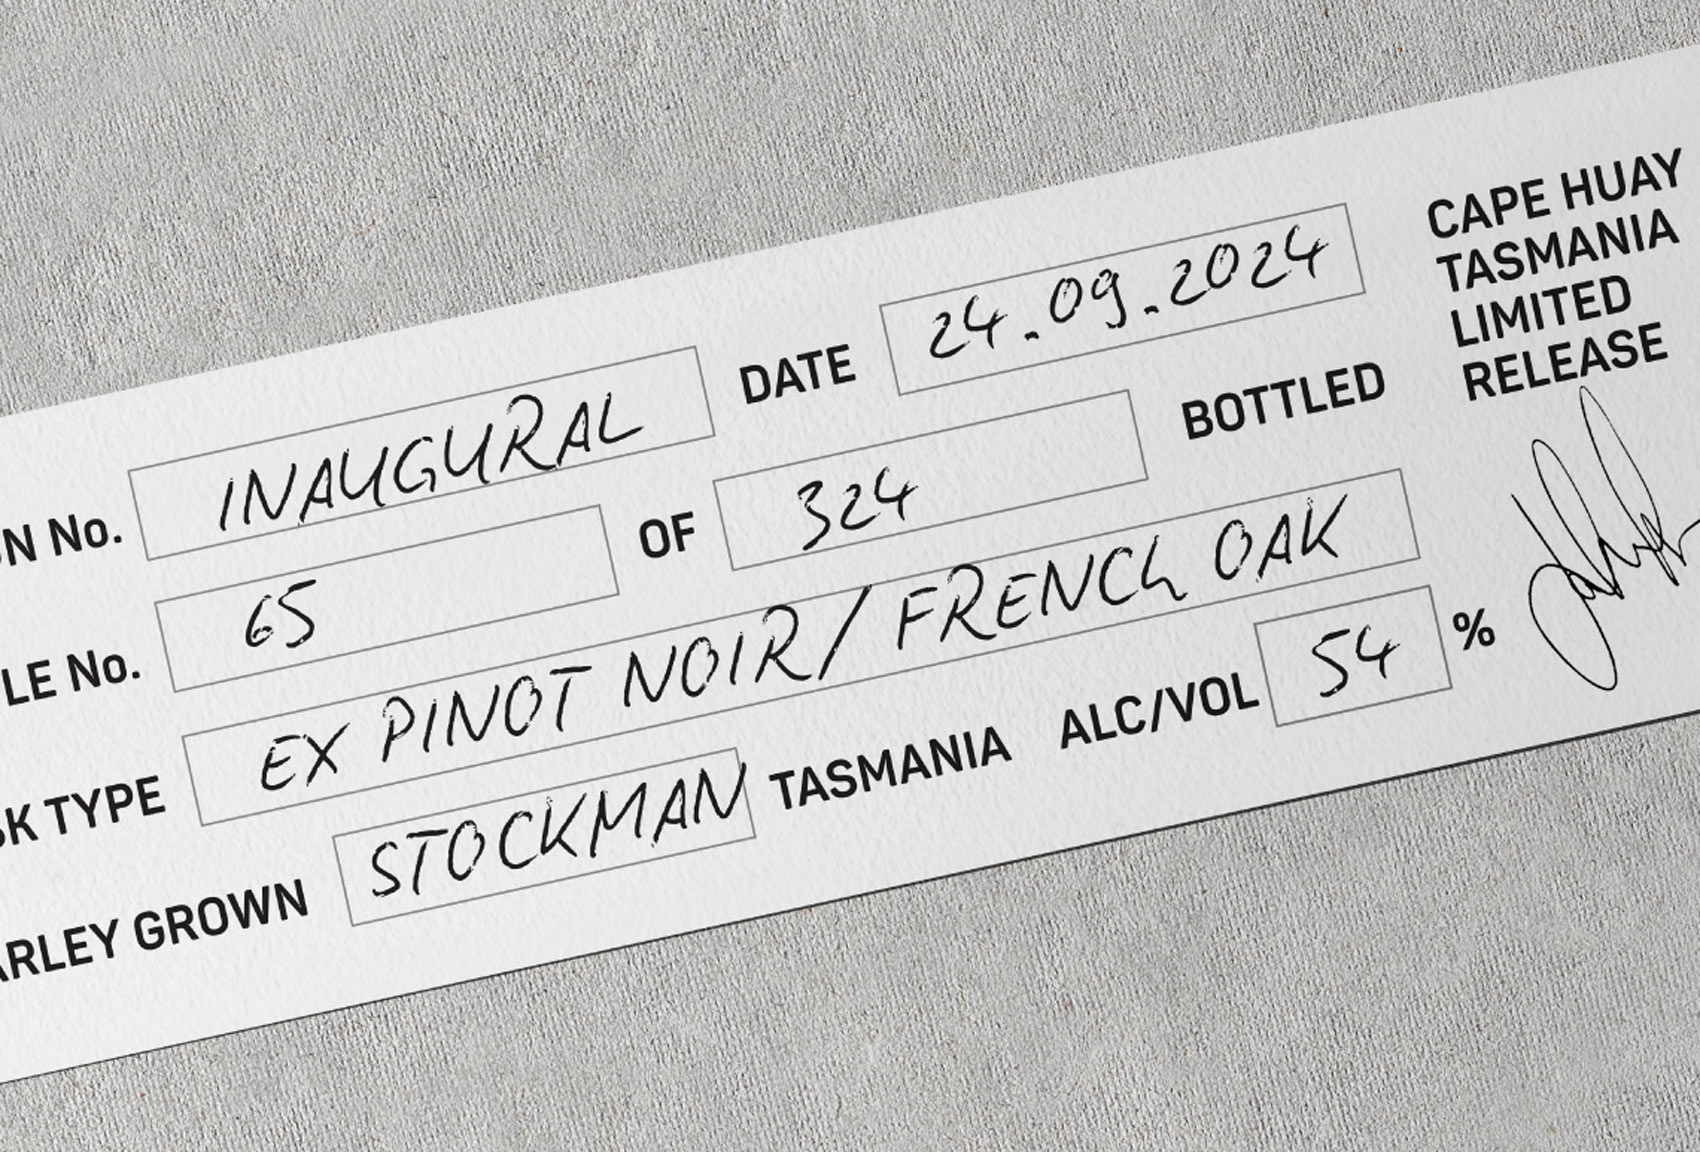 N No. INAUGURAL DATE 24.09.2024
LE No. 65 OF 324 BOTTLED
SK TYPE EX PINOT NOIR/FRENCH OAK
ARLEY GROWN STOCKMAN TASMANIA ALC/VOL 54 %
CAPE HUAY
TASMANIA
LIMITED
RELEASE